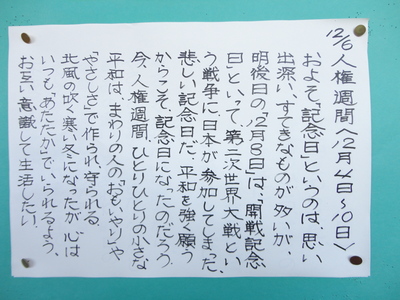 12/6 人権週間〈12月4日〜10日〉
およそ「記念日」というのは、思い
出深い、すてきなものが多いが、
明後日の「12月8日」は、「開戦記念
日」といって、第二次世界大戦とい
う戦争に、日本が参加してしまった、
悲しい記念日だ。平和を強く願う
からこそ、記念日になったのだろう。
今、人権週間、ひとりひとりの小さな
平和は、まわりの人の「おもいやり」や
「やさしさ」で作られ、守られる。
北風の吹く寒い冬になったが、心は
いつも「あたたか」でいられるよう、
お互い意識して生活したい。